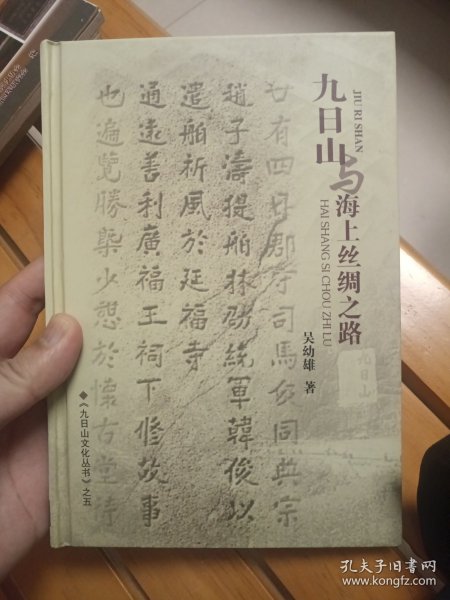 九日山与海上丝绸之路
JIU RI SHAN
HAI SHANG SI CHOU ZHI LU
吴幼雄 著
廿有四日郡守司馬伋同典宗
趙子濤提舶林劭統軍韓俊以
遣舶祈風於延福寺
通遠善利廣福王祠下修故事
也遍覽勝槩少憩於懷古堂待
九日山
◆《九日山文化丛书》之五
孔夫子旧书网
www.kongfz.com